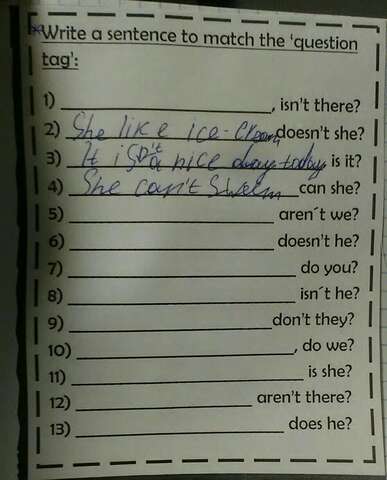 Write a sentence to match the 'question
tag':
1) ____________________, isn't there?
2) She like ice-cream doesn't she?
3) It isn't a nice day today, is it?
4) She can't swem can she?
5) ____________________ aren´t we?
6) ____________________ doesn't he?
7) ____________________ do you?
8) ____________________ isn´t he?
9) ____________________don't they?
10) ____________________, do we?
11) ____________________ is she?
12) ____________________ aren't there?
13) ____________________ does he?